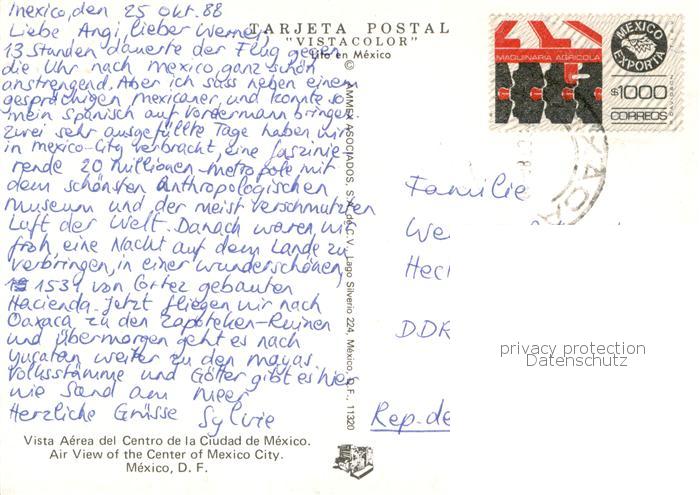 Mexico, den 25 okt. 88
Liebe Angi, lieber Werner,
13 Stunden dauerte der Flug gegen
die Uhr nach Mexico ganz schön
anstrengend. Aber ich sass neben einem
gesprächigen mexicaner, und konnte so
mein Spanisch auf Vordermann bringen.
Zwei sehr ausgefüllte Tage haben wir
in Mexico-City verbracht, eine faszinie-
rende 20 Millionen-Metropole mit
dem schönsten Anthropologischen
Museum und der meist verschmutzten
Luft der Welt. Danach waren wir
froh eine Nacht auf dem Lande zu
verbringen, in einer wunderschönen,
1531 von Cortez gebauten
Hacienda. Jetzt fliegen wir nach
Oaxaca zu den Zapoteken-Ruinen
und übermorgen geht es nach
Yucatan weiter zu den Mayas.
Volksstämme und Götter gibt es hier
wie Sand am Meer
Herzliche Grüsse Sylvie
Vista Aérea del Centro de la Ciudad de México.
Air View of the Center of Mexico City.
México, D. F.
TARJETA POSTAL
"VISTACOLOR"
Lito en México
© AMMEX ASOCIADOS, S.A. de C.V., Lago Silverio 224, México, D.F., 11320
MAQUINARIA AGRICOLA
MEXICO
EXPORTA
$1000
CORREOS
Familie
We
Hec
DDR
Rep. de
privacy protection
Datenschutz